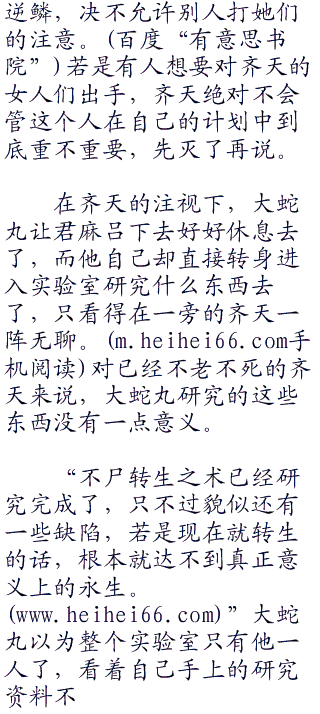 逆鳞，决不允许别人打她们
的注意。(百度“有意思书
院”)若是有人想要对齐天的
女人们出手，齐天绝对不会
管这个人在自己的计划中到
底重不重要，先灭了再说。
在齐天的注视下，大蛇
丸让君麻吕下去好好休息去
了，而他自己却直接转身进
入实验室研究什么东西去
了，只看得在一旁的齐天一
阵无聊。(m.heihei66.com手
机阅读)对已经不老不死的齐
天来说，大蛇丸研究的这些
东西没有一点意义。
“不尸转生之术已经研
究完成了，只不过貌似还有
一些缺陷，若是现在就转生
的话，根本就达不到真正意
义上的永生。
(www.heihei66.com)”大蛇
丸以为整个实验室只有他一
人了，看着自己手上的研究
资料不